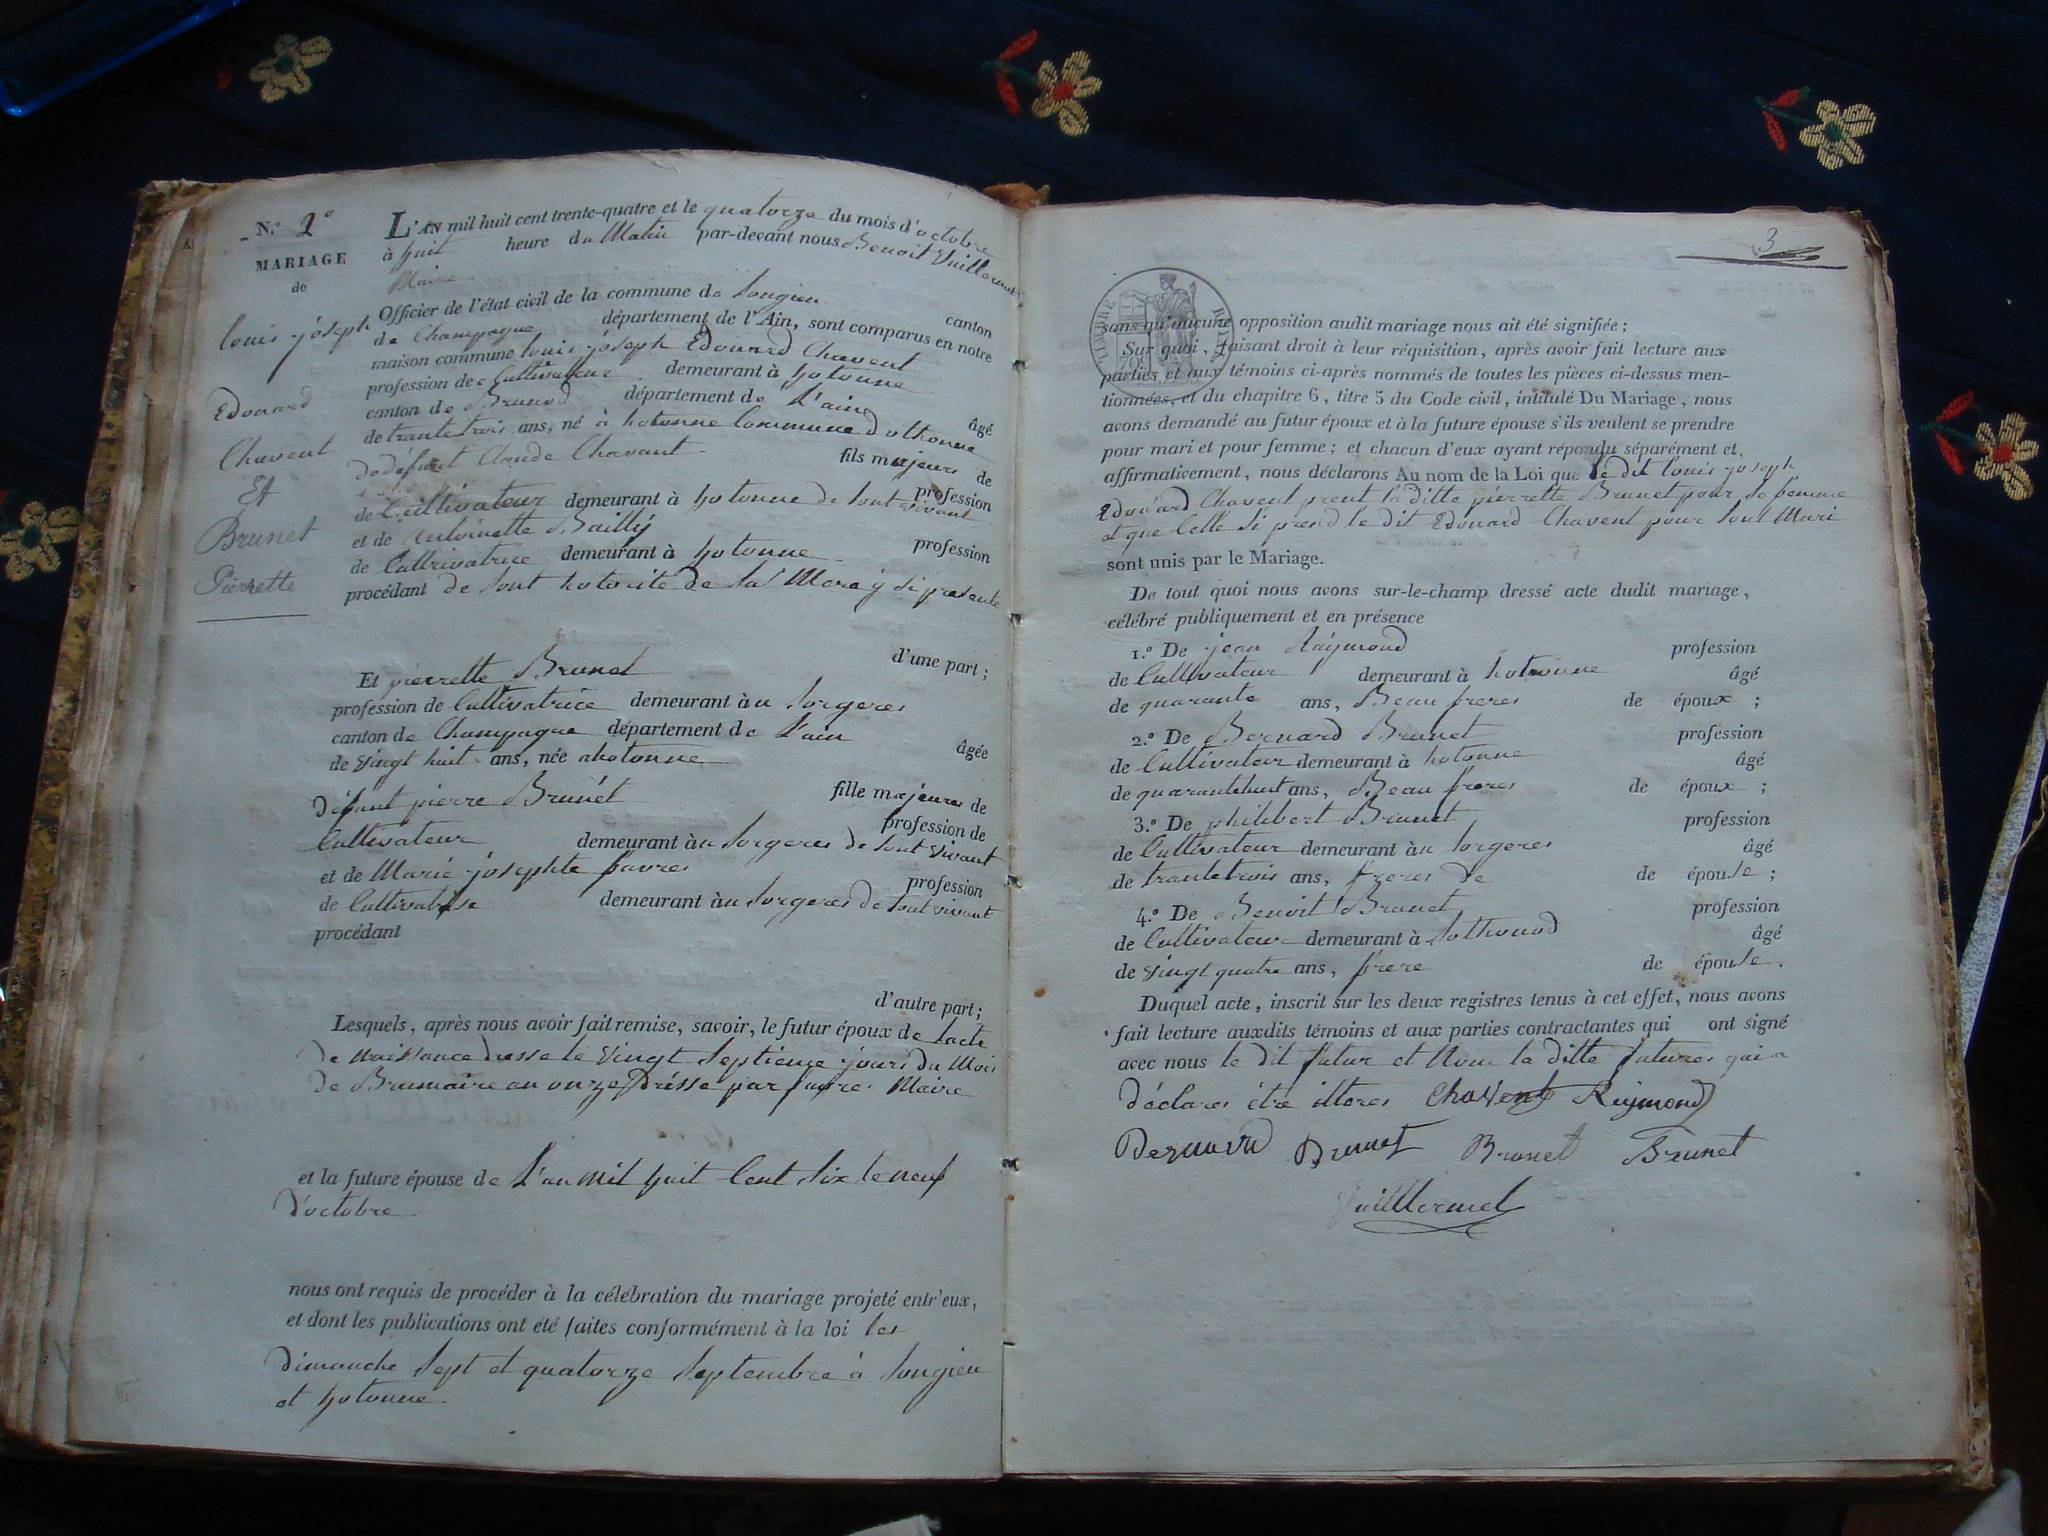 N.º 1º
MARIAGE
de
Louis joseph
Edouard
Chavent
Et
Brunet
Pierrette
L'AN mil huit cent trente-quatre et le quatorze du mois d'octobre
à huit heure du Matin par-devant nous Benoit Vuillermet
Maire
Officier de l'état civil de la commune de Songieu canton
de Champagne département de l'Ain, sont comparus en notre
maison commune Louis joseph Edouard Chavent
profession de Cultivateur demeurant à hotonne
canton de Brenod département de L'ain âgé
de trante trois ans, né à hotonne Commune d othonne
fils majeur de
de défunt Claude Chavant profession
de Cultivateur demeurant à hotonne de Sont vivant
et de antoinette Bailly profession
de Cultivatrice demeurant à hotonne
procédant de Sont hotorité de Sa Mere y si presente
d'une part ;
Et pierrette Brunet
profession de Cultivatrice demeurant à u Sorgeres
canton de Champagne département de L'ain âgée
de vingt huit ans, née a hotonne
fille majeure de
Défunt pierre Brunet profession de
Cultivateur demeurant àu Sorgeres de Sont vivant
et de Marie josephte favres profession
de demeurant àu Sorgeres de Sont vivant
procédant
d'autre part ;
Lesquels, après nous avoir fait remise, savoir, le futur époux de Lacte
de Naissance dresse le vingt Septieme jours du Mois
de Brumaire an onze Drésse par favres Maire
et la future épouse de L'an mil huit Cent Six le neuf
D'octobre
nous ont requis de procéder à la célébration du mariage projeté entr'eux,
et dont les publications ont été faites conformément à la loi les
dimanche Sept et quatorze Septembre à Songieu
et hotonne
3
TIMBRE
sans qu'aucune opposition audit mariage nous ait été signifiée ;
Sur quoi, faisant droit à leur réquisition, après avoir fait lecture aux
parties et aux témoins ci-après nommés de toutes les pièces ci-dessus men-
tionnées, et du chapitre 6, titre 5 du Code civil, intitulé Du Mariage, nous
avons demandé au futur époux et à la future épouse s'ils veulent se prendre
pour mari et pour femme ; et chacun d'eux ayant répondu séparément et
affirmativement, nous déclarons Au nom de la Loi que le dit louis joseph
Edouard Chavent prent la ditte pierrette Brunet pour Sa femme
et que Celle Si prend le dit Edouard Chavent pour Sont Mari
sont unis par le Mariage.
De tout quoi nous avons sur-le-champ dressé acte dudit mariage,
célébré publiquement et en présence
1.º De jean Raymond profession
de Cultivateur demeurant à hotonne âgé
de quarante ans, Beau freres de époux ;
2.º De Bernard Brunet profession
de Cultivateur demeurant à hotonne âgé
de quarantehuit ans, Beau freres de époux ;
3.º De philibert Brunet profession
de Cultivateur demeurant àu Sorgeres âgé
de trantetrois ans, freres de de épouse ;
4.º De Benoit Brunet profession
de Cultivateur demeurant à Sothonod âgé
de vingt quatre ans, frere de épouse.
Duquel acte, inscrit sur les deux registres tenus à cet effet, nous avons
fait lecture auxdits témoins et aux parties contractantes qui ont signé
avec nous le dit futur et Non la ditte futures qui a
Déclares être illeres Chavent Reymond
Bernard Brunet Brunet Brunet
Vuillermet